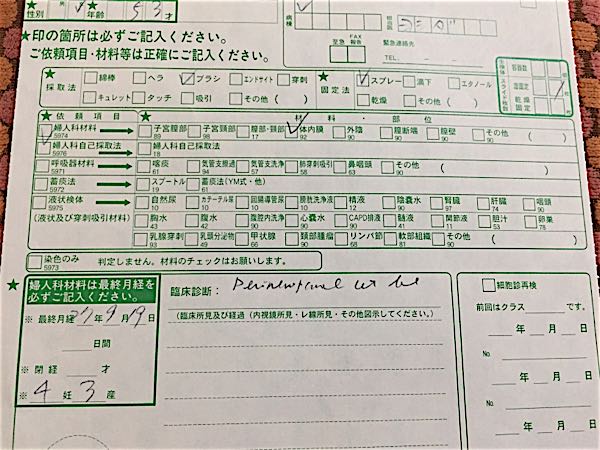 ★ ★
性別 男 女 年齢 53才
病棟
担当医
★印の箇所は必ずご記入ください。
ご依頼項目・材料等は正確にご記入ください。
至急 FAX報告 緊急連絡先
TEL.
★ 採取法 綿棒 ヘラ ブラシ エンドサイト 穿刺
キュレット タッチ 吸引 その他( )
★ 固定法 スプレー 滴下 エタノール
乾燥 その他( )
★ 依頼項目 ★ 材料・部位
婦人科材料 5974 子宮腟部 89 子宮頸部 90 腟部・頸部 17 体内膜 92 外陰 90 腟断端 90 腟壁 90 その他( )
婦人科自己採取法 5976 自己採取法 18
呼吸器材料 5971 喀痰 61 気管支擦過 94 気管支洗浄 57 肺穿刺吸引 58 鼻咽頭 63 その他( ) 90
蓄痰法 5972 スプートル 19 蓄痰法(YM式・他) 61
液状検体 5975 自然尿 10 カテーテル尿 10 回腸導管尿 10 膀胱洗浄液 10 精液 12 陰嚢水 90 腎臓 97 肝臓 74 咽頭 90
(液状及び穿刺吸引材料) 胸水 43 腹水 42 腹腔内洗浄 90 心嚢水 90 CAPD排液 90 髄液 41 関節液 11 胆汁 53 卵巣 78
乳腺穿刺 93 乳頭分泌物 49 甲状腺 66 頸部腫瘤 90 リンパ節 68 軟部組織 81 その他( ) 90
染色のみ 5973 判定しません。材料のチェックはお願いします。
★ 婦人科材料は最終月経を必ずご記入ください。
※ 最終月経 27年9月19日
日間
※ 閉経 才
※ 4妊 3産
臨床診断:
(臨床所見及び経過(内視鏡所見・レ線所見・その他図示してください。)
細胞診再検
前回はクラス
年 月 日
No
年 月 日
No
年 月 日